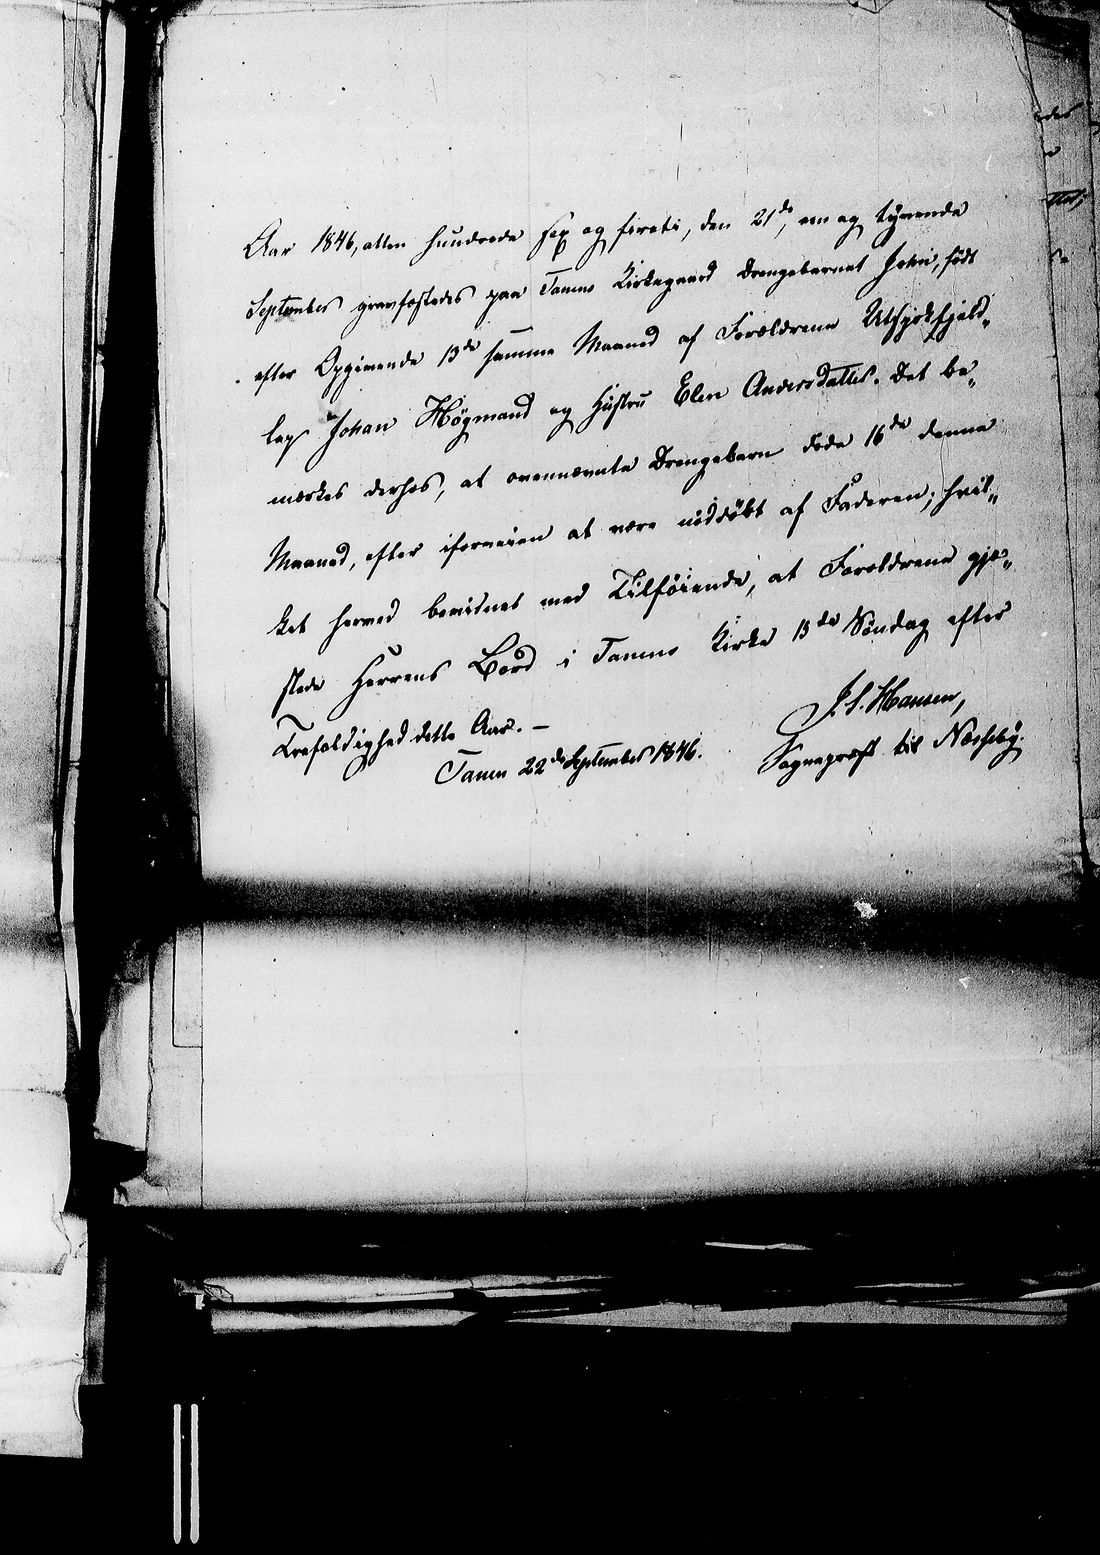 Aar 1846, atten hundrede sex og fireti, den 21de, een og tyvende
September gravfæstedes paa Tanens Kirkegaard Drengebarnet John, født
efter Opgivende 13de samme Maaned af Forældrene Utsjokfjeld„
lap Johan Högmand og Hustru Elen Andersdatter. Det be„
mærkes derhos, at ovennævnte Drengebarn døde 16de denne
Maaned, efter iforveien at være nöddöbt af Faderen; hvil„
ket herved bevidnes med Tilföiende, at Forældrene gjæ„
stede Herrens Bord i Tanens Kirke 13de Söndag efter
Trefoldighed dette Aar. –
Tanen 22de September 1846.
J. S. Hansen,
Sognepræst til Næsseby.